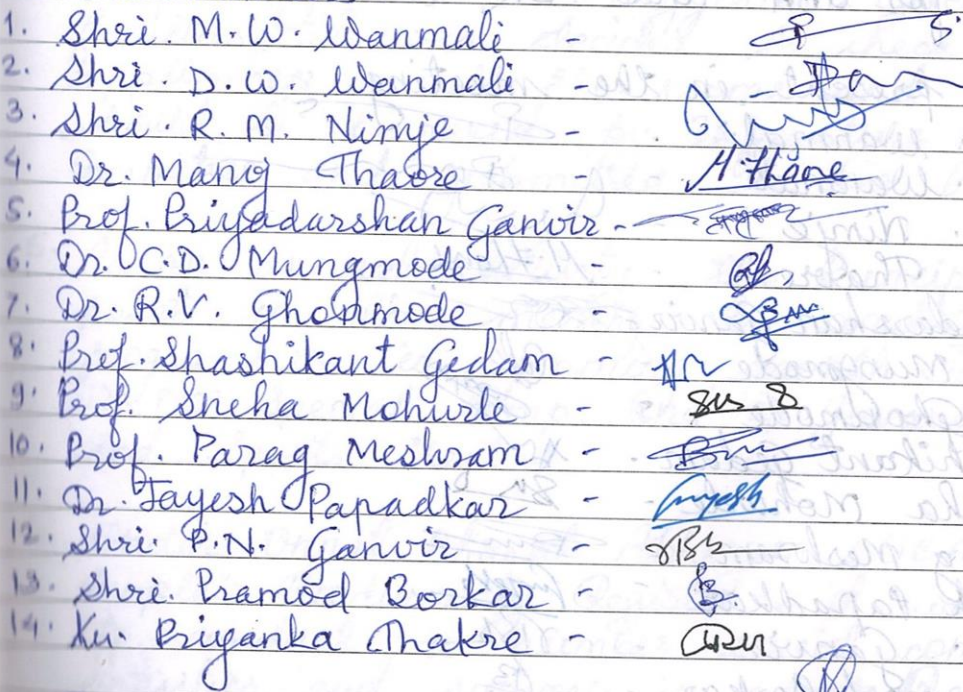 1. Shri. M.W. Wanmali -
2. Shri. D.W. Wanmali -
3. Shri. R.M. Nimje -
4. Dr. Manoj Thaore - M.Thaore
5. Prof. Priyadarshan Ganvir -
6. Dr. C.D. Mungmode -
7. Dr. R.V. Ghonmode -
8. Prof. Shashikant Gedam -
9. Prof. Sneha Mohurle -
10. Prof. Parag Meshram -
11. Dr. Jayesh Papadkar - Jayesh
12. Shri. P.N. Ganvir -
13. Shri. Pramod Borkar -
14. Ku. Priyanka Thakre -